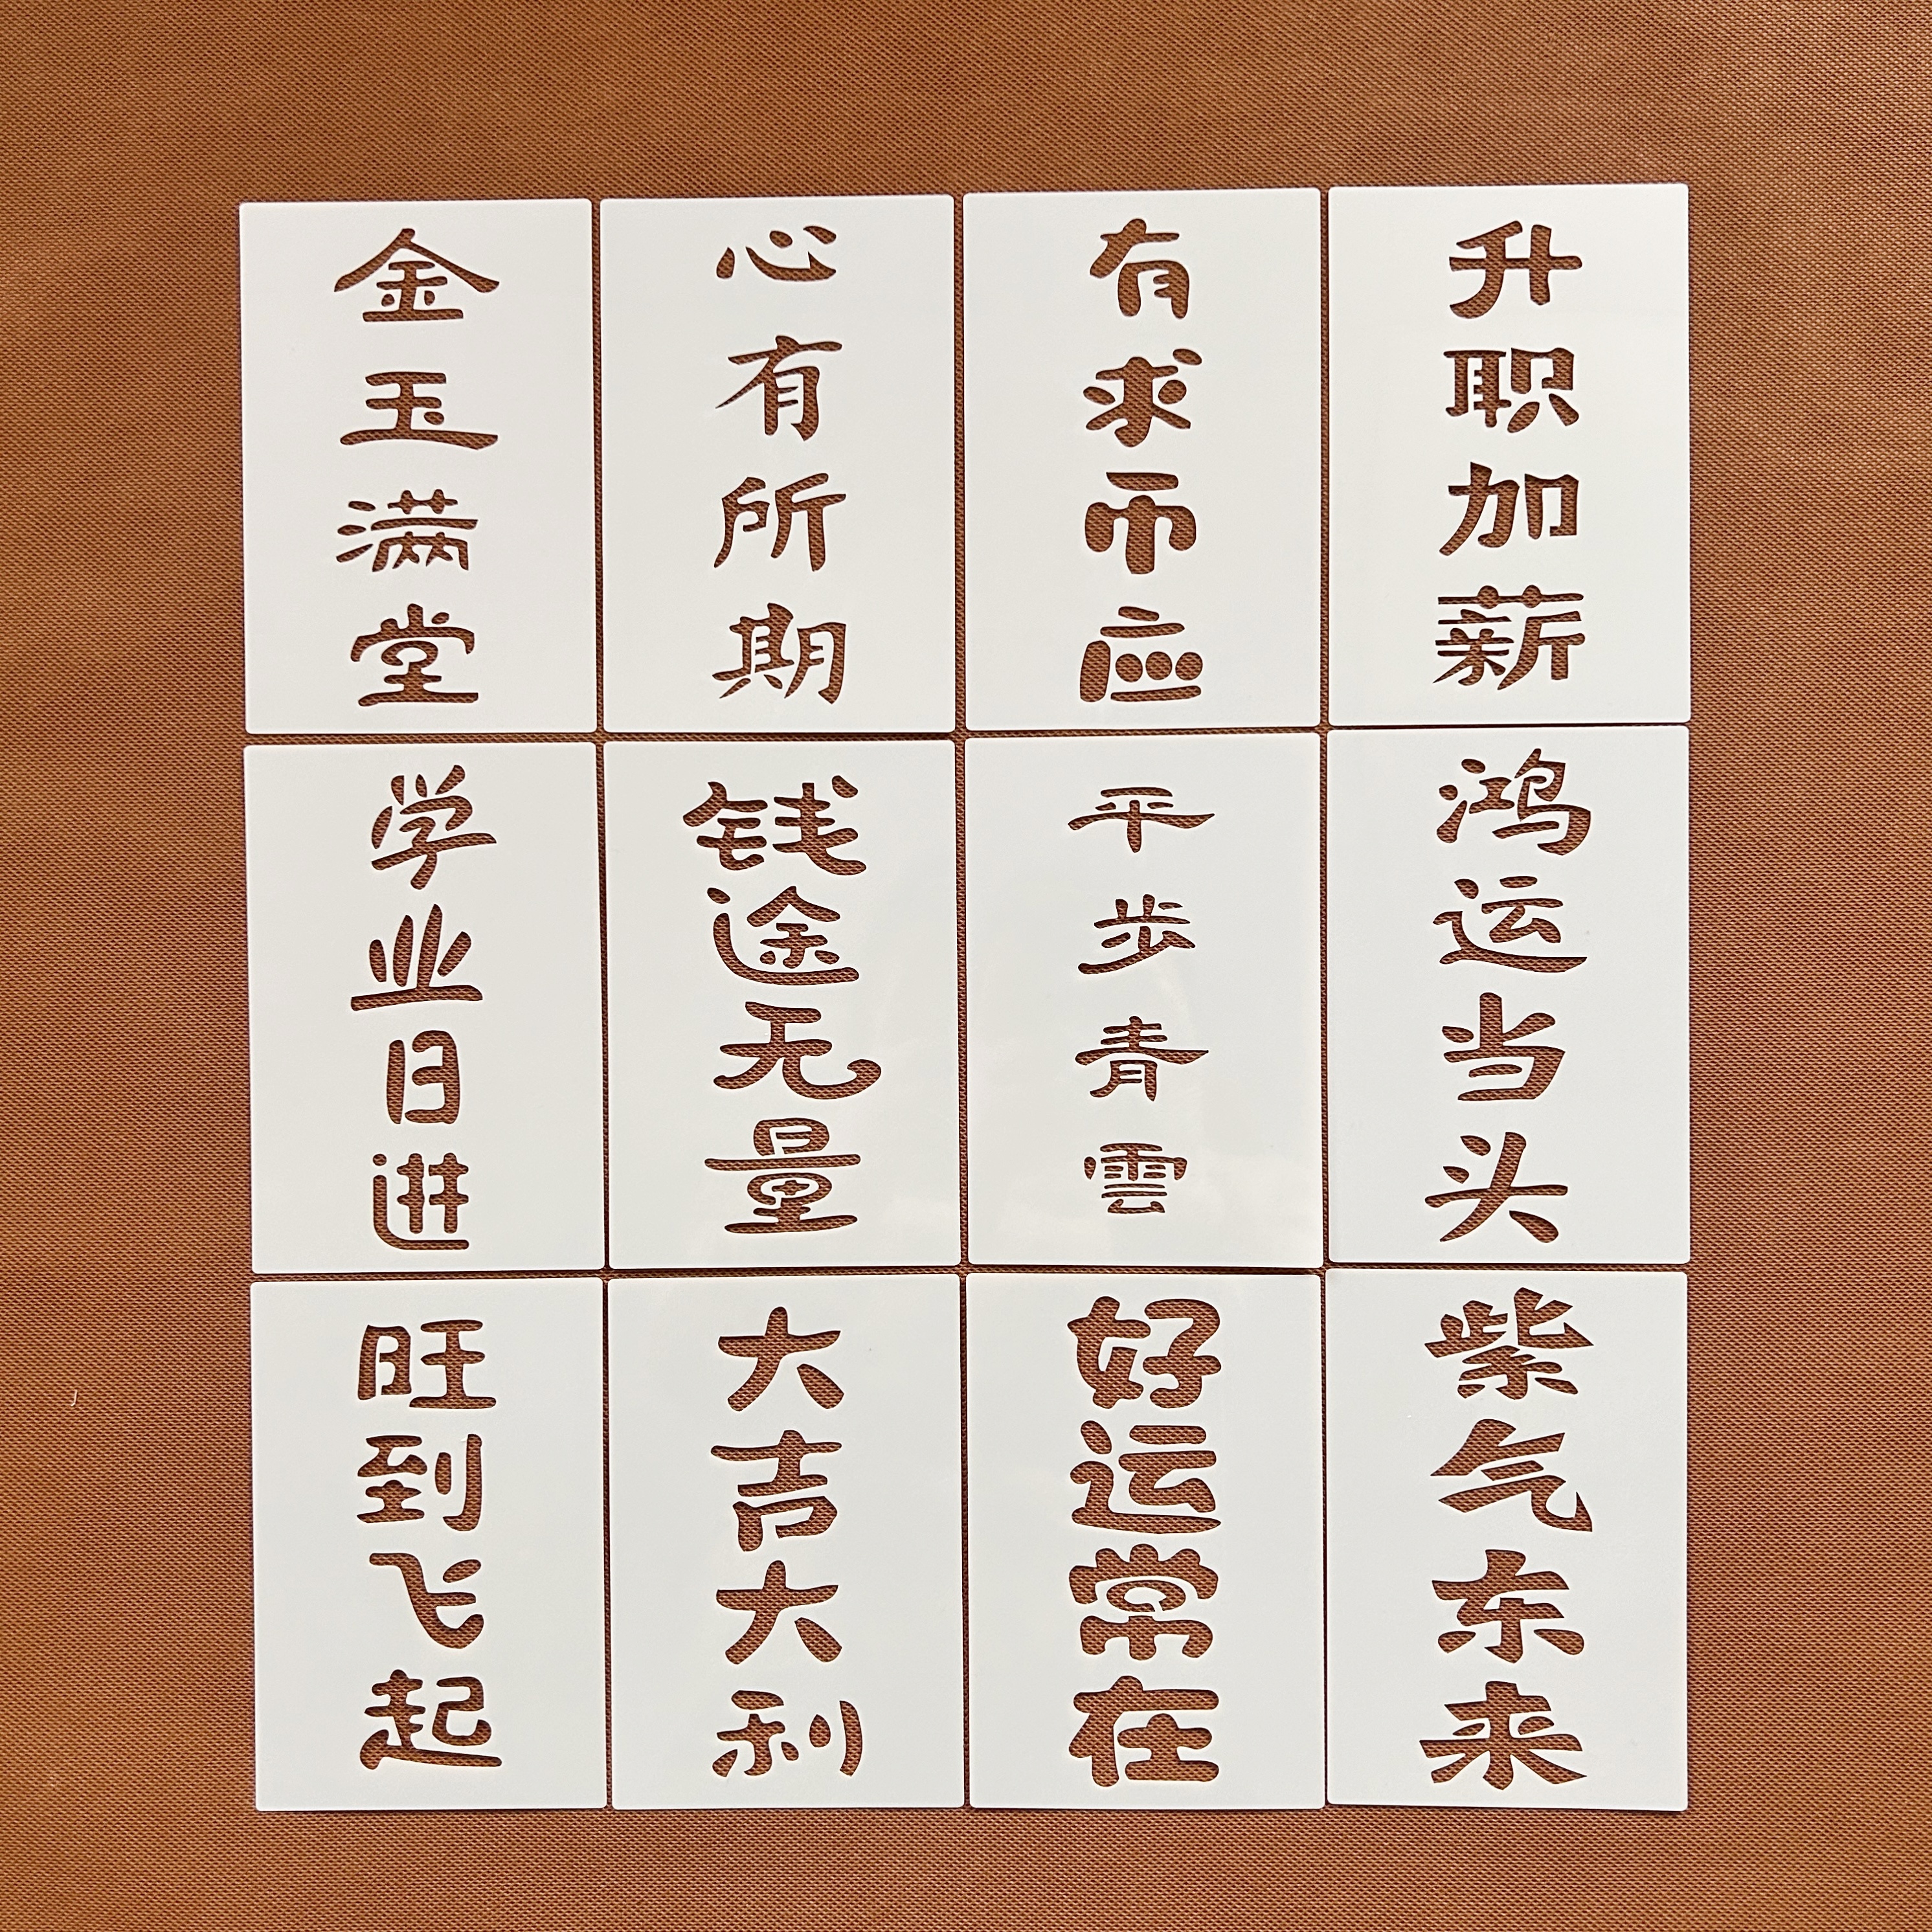 金玉满堂
心有所期
有求币应
升职加薪
学业日进
钱途无量
平步青雲
鸿运当头
旺到飞起
大吉大利
好运常在
紫气东来